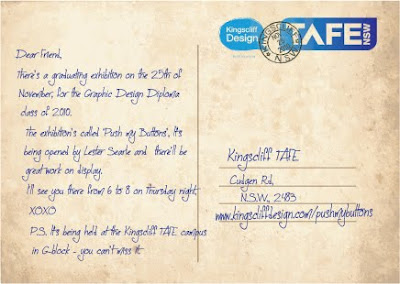 Dear Friend,
There's a graduating exhibition on the 25th of
November, for the Graphic Design Diploma
class of 2010.
The exhibition's called 'Push my Buttons', It's
being opened by Lester Searle and there'll be
great work on display.
I'll see you there from 6 to 8 on Thursday night.
XOXO
P.S. It's being held at the Kingscliff TAFE campus
in G-block - you can't miss it.
Kingscliff
Design
TAFE
NSW
Kingscliff TAFE
Cudgen Rd,
N.S.W., 2483
www.kingscliffdesign.com/pushmybuttons